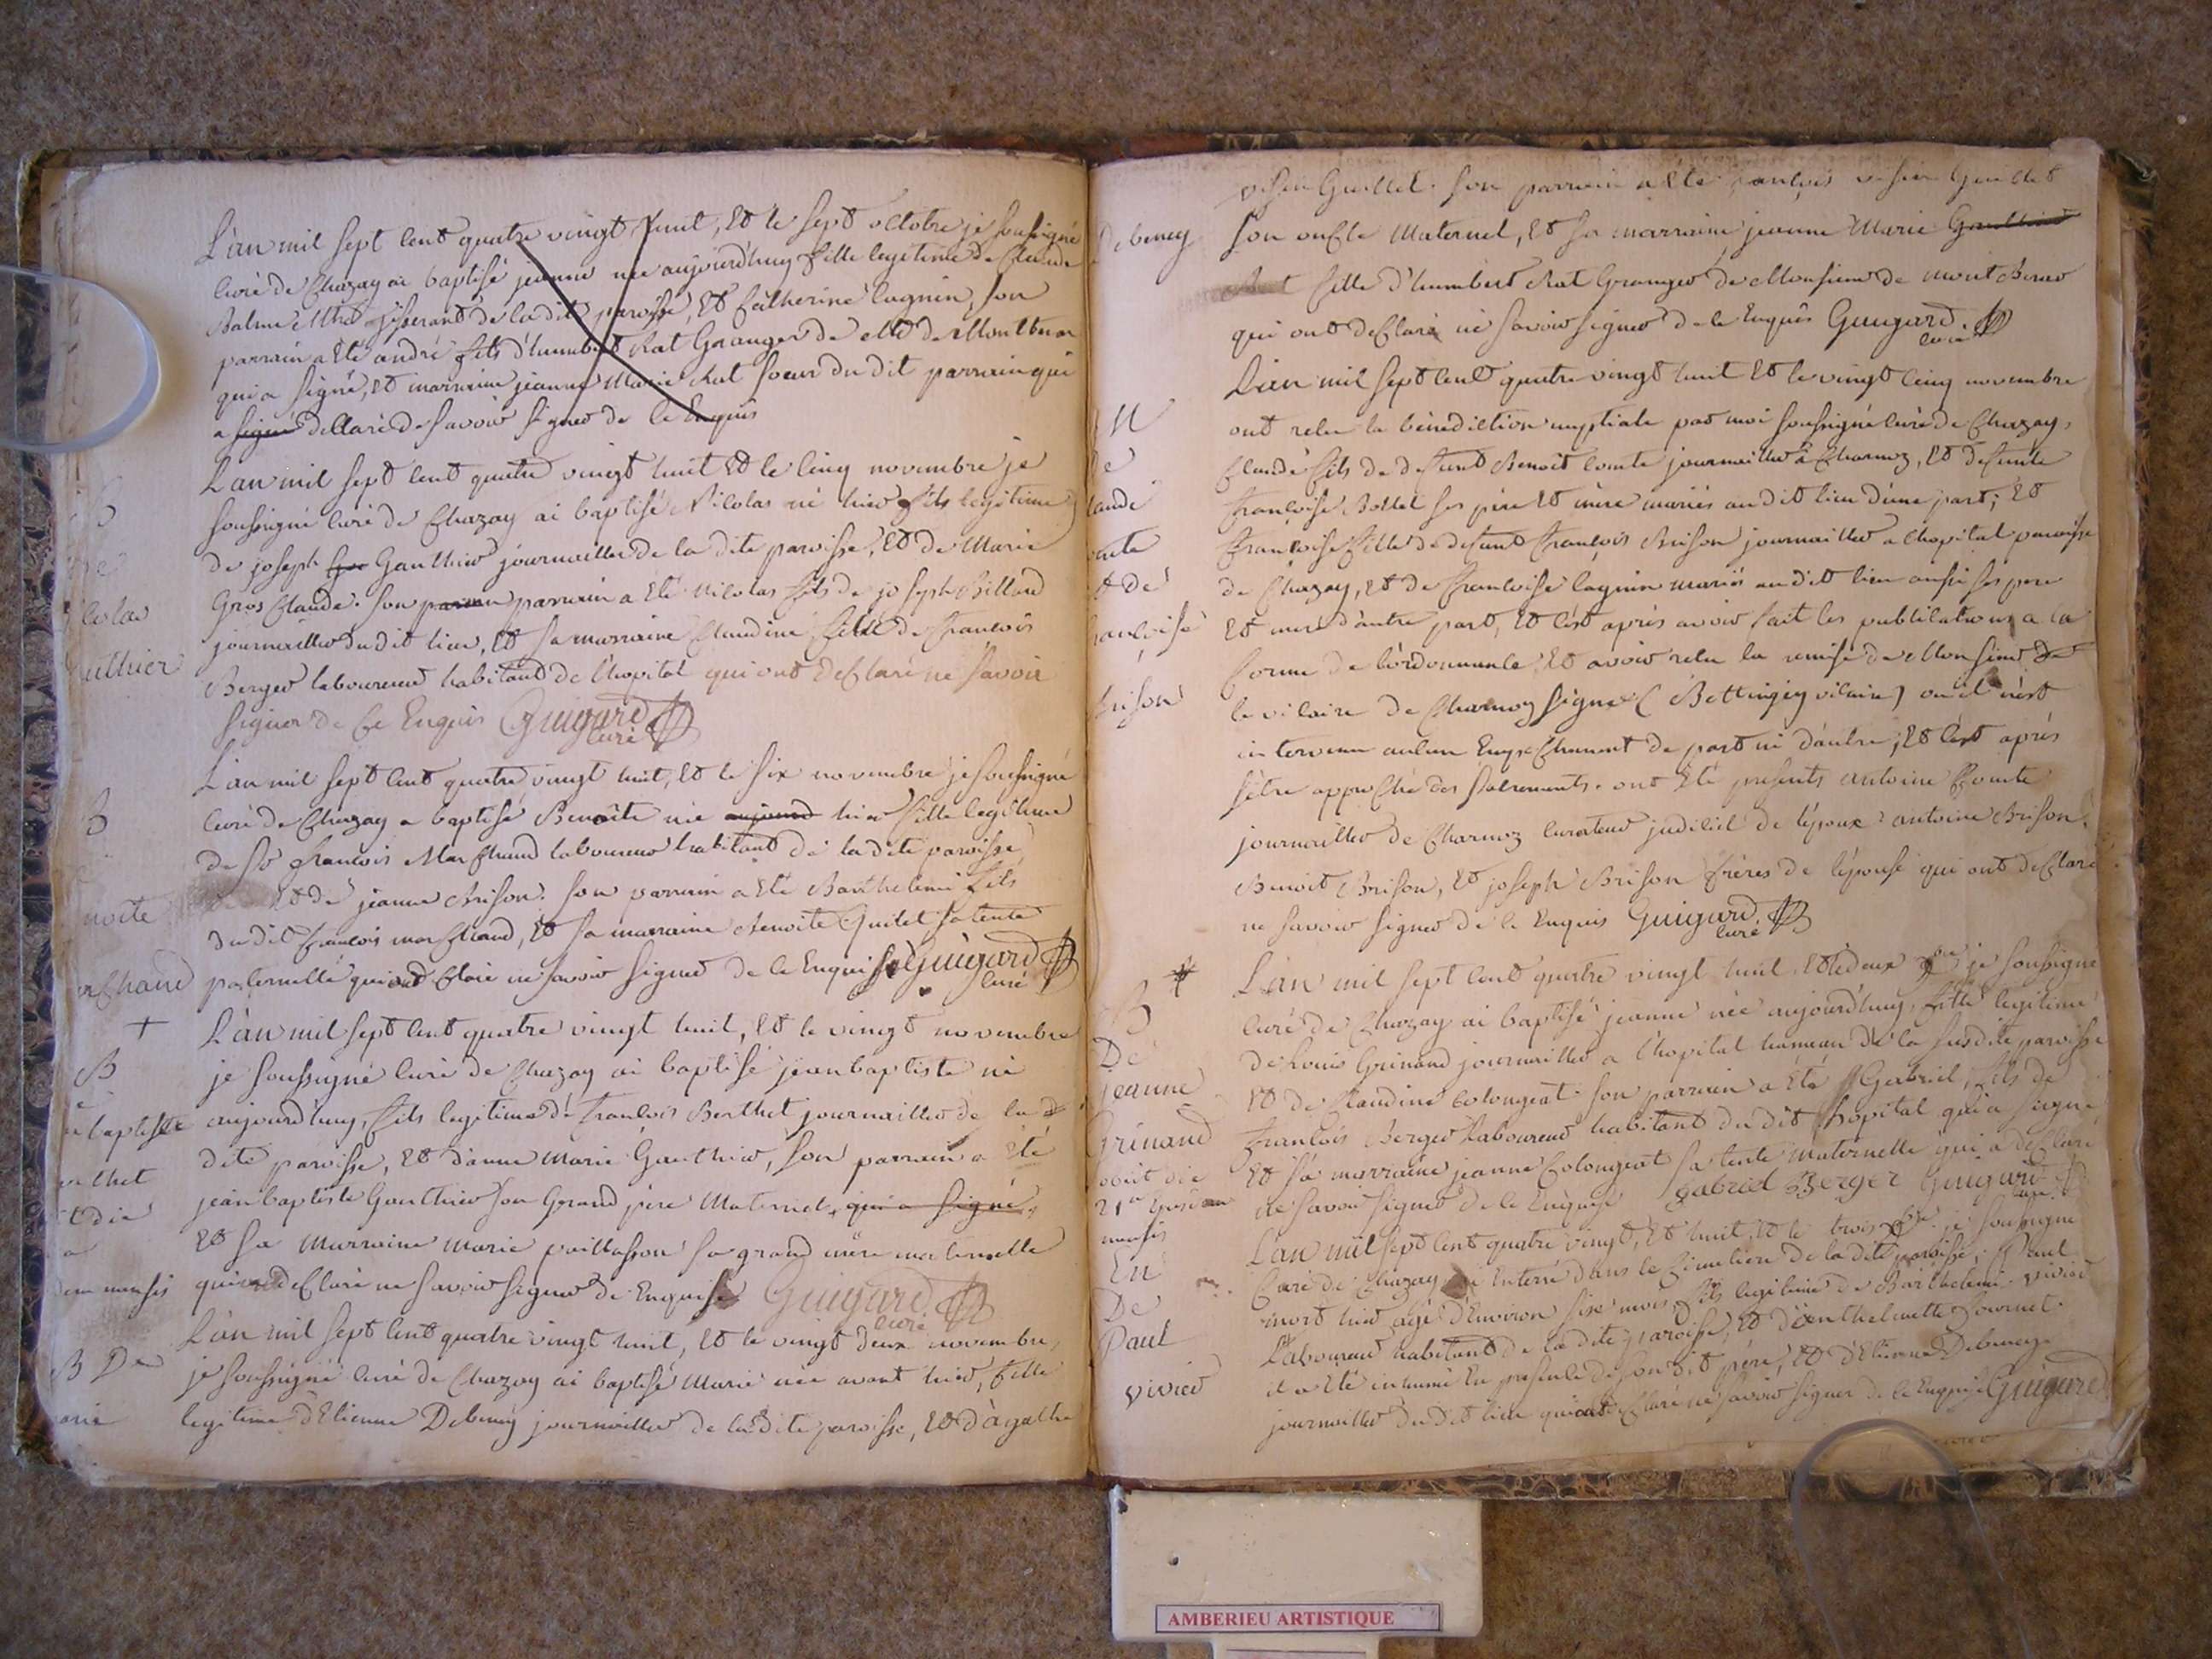 L'an mil sept cent quatre vingt huit, et le sept octobre je soussigné
curé de Chazay ai baptisé jeanne née aujourd'huy fille legitime de Claude
de la dite paroisse, et Catherine lagnin, son
parrain a été andré fils d'humbert Rat Granger de Mr de Montbrun
qui a signé, et marraine jeanne Marie Rat soeur du dit parrain qui
a signé declaré de savoir signer de ce Enquis
L'an mil sept cent quatre vingt huit et le cinq novembre je
B
soussigné curé de Chazay ai baptisé Nicolas né hier fils legitime
de joseph Gauthier journaillier de la dite paroisse, et de Marie
colas
Gros Claude. son parrain a été Nicolas fils de joseph Billard
journaillier du dit lieu, et sa marraine Claudine fille de François
uthier
Berger laboureur habitant de l'hopital qui ont declaré ne savoir
signer de ce Enquis Guigard
curé
L'an mil sept cent quatre vingt huit, et le six novembre je soussigné
B
curé de Chazay a baptisé Benoîte née aujourd hier fille legitime
de Sr francois Marchand laboureur habitant de la dite paroisse
noite
et de jeanne Brison. son parrain a été Barthelemi fils
du dit francois marchand, et sa marraine Benoîte Quilet sa tente
rchand
paternelle qui ont declaré ne savoir signer de ce Enquis Guigard
curé
+
L'an mil sept cent quatre vingt huit, et le vingt novembre
B
je soussigné curé de Chazay ai baptisé jean baptiste né
baptiste
aujourd'huy, fils legitime de françois Berthet journaillier de la
thet
dite paroisse, et d'anne Marie Gauthier, son parrain a été
jean baptiste Gauthier son Grand père Maternel, qui a signé,
et sa Marraine Marie paillasson sa grand mère maternelle
mensis
qui ont declaré ne savoir signer de Enquis Guigard
curé
L'an mil sept cent quatre vingt huit, et le vingt deux novembre,
B De
je soussigné curé de Chazay ai baptisé Marie née avant hier, fille
arie
legitime d'Etienne Debeney journaillier de la dite paroisse, et d'agathe
Guillet. son parrain a été françois Guillet
Debeney
son oncle Maternel, et sa marraine jeanne Marie Gauthier
Rat fille d'humbert Rat Granger de Monsieur de mont Brun
qui ont declaré ne savoir signer de ce Enquis Guigard.
curé
L'an mil sept cent quatre vingt huit et le vingt cinq novembre
M
ont reçu la bénédiction nuptiale par moi soussigné curé de Chazay,
de
Claude fils de defunt Benoît Comte journaillier à Charnoz, et defunte
laude
françoise Bottet ses père et mère mariés au dit lieu d'une part; et
omte
françoise fille de defunt françois Brison journaillier a l'hopital paroisse
et de
de Chazay, et de francoise lagnin mariés au dit lieu aussi ses pere
rançoise
et mere d'autre part, et c'est après avoir fait les publications a la
forme de l'ordonnance et avoir reçu la remise de Monsieur
Brison
le vicaire de Charnoz signé ( Bettingey vicaire) ou il n'est
intervenu aucun Empechement de part ni d'autre; et c'est après
s'être approché des sacrements. ont été presents antoine Comte
journaillier de Charnoz curateur judiciel de l'époux: antoine Brison,
Benoit Brison, et joseph Brison frères de l'épouse qui ont declaré
ne savoir signer de ce Enquis Guigard.
curé
L'an mil sept cent quatre vingt huit et le deux xbre je soussigné
B
curé de Chazay ai baptisé jeanne née aujourd'huy, fille legitime
De
de Louis Grinand journaillier a l'hopital hameau de la susdite paroisse
jeanne
et de Claudine Colongeat. son parrain a été Gabriel, fils de
Grinand
François Berger laboureur habitant du dit hopital qui a signé
obiit die
et sa marraine jeanne Colongeat sa tente maternelle qui a declaré
21a
ne savoir signer de ce Enquise gabriel Berger Guigard
curé
mensis
L'an mil sept cent quatre vingt, et huit, et le trois xbre je soussigné
En
Curé de Chazay ai Enterré dans le Cimetiere de la dite paroisse, Paul
De
mort hier agé d'Environ six mois, fils legitime de Barthelemi vivier
Paul
Laboureur habitant de la dite paroisse, et d'Enthelmette Journet.
il a été inhumé En presence de son dit père, et d'Etienne Debeney
vivier
journaillier du dit lieu qui ont declaré ne savoir signer de ce Enquis Guigard
AMBERIEU ARTISTIQUE